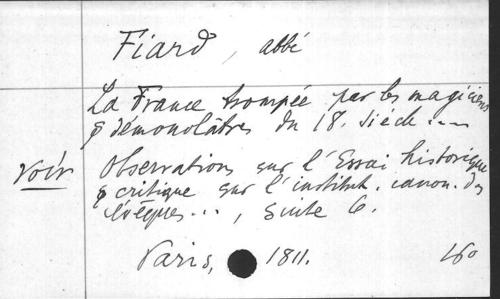 Fiard, abbé
La France trompée par les magiciens
& démonolâtres du 18. siècle ....
voir Observations sur l'Essai historique
& critique sur l'institut. canon. des
évêques..., suite 6.
Paris, 1811. 160